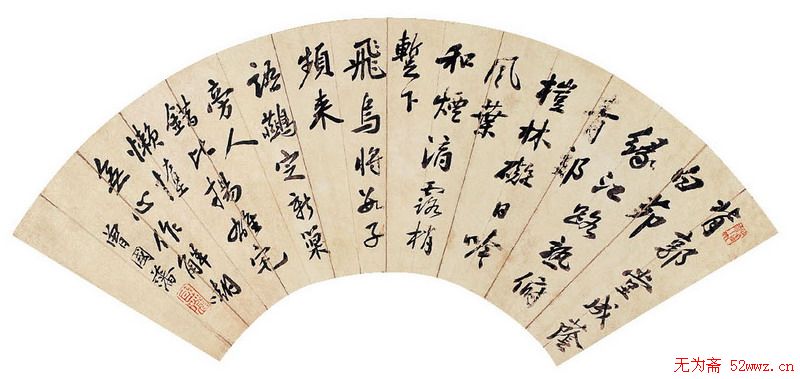 背郭堂成蔭
白茆
緣江路熟俯
青郊
榿林礙日吟
風葉
和煙滴露梢
蹔下
飛烏將數子
頻来
語鷰定新巢
旁人
錯比揚雄宅
懶惰
無心作解嘲
曾國藩
无为斋 52wwz.cn